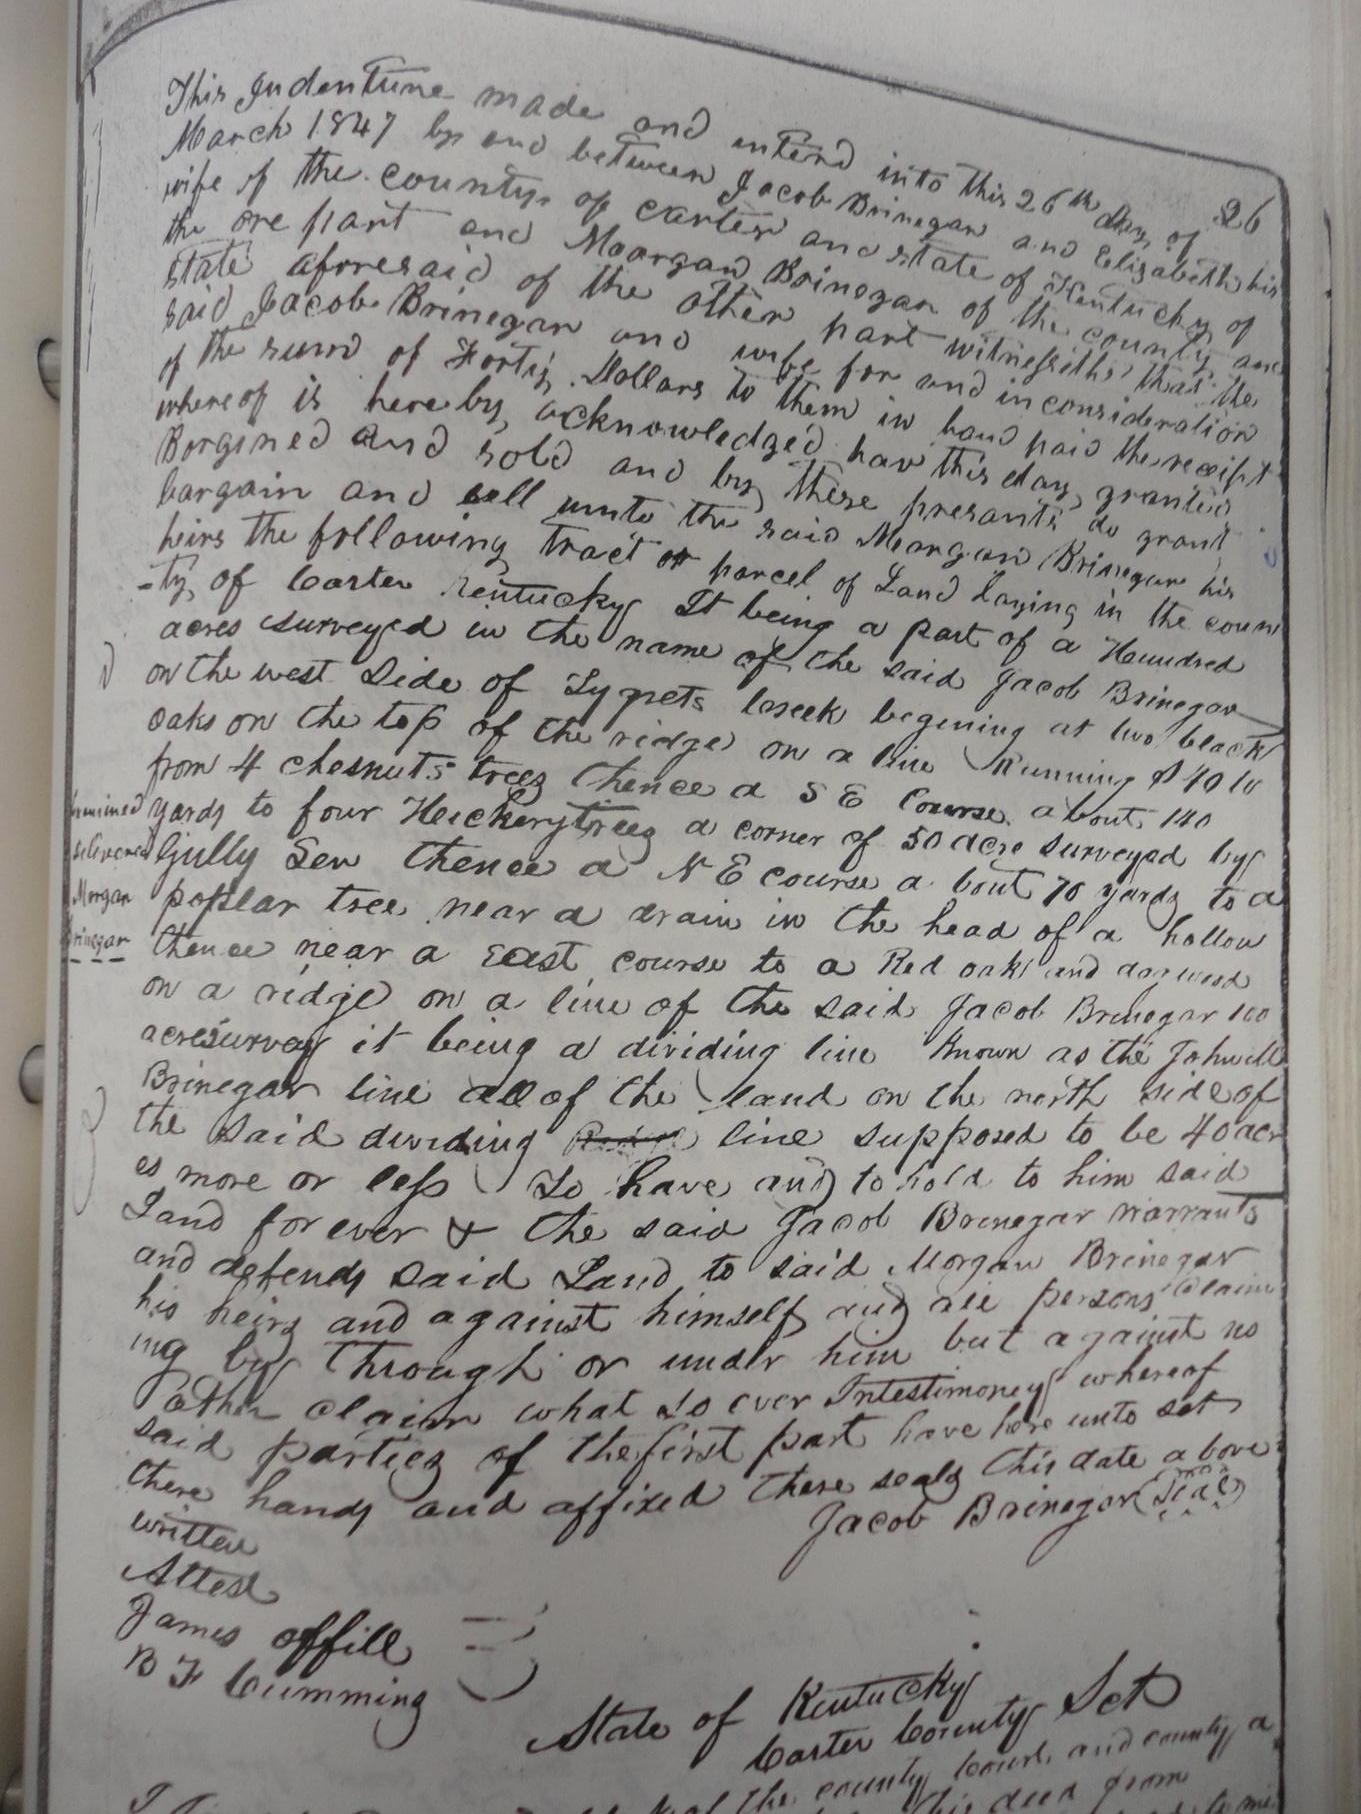 26
This Indenture made and enterd into this 26th day of
March 1847 by and between Jacob Brinegar and Elizabeth his
wife of the county of Carter and state of Kentucky of
the one part and Moargan Brinegar of the county and
state aforesaid of the other part witnesseth, that the
said Jacob Brinegar and wife for and in consideration
of the sum of Forty Dollars to them in hand paid the receipt
whereof is hereby acknowledged have this day granted
Borgined and sold and by these presants do grant
bargain and sell unto the said Morgan Brinegar his
heirs the following tract or parcel of Land Laying in the coun
-ty of Carter Kentucky It being a part of a Hundred
acres surveyed in the name of the said Jacob Brinegar
on the west side of Tygrets Creek begening at two black
oaks on the top of the ridge on a line Running
from 4 chesnuts trees thence a S E Course about 140
yards to four Heickery trees a corner of 50 acre surveyed by
Gully Sen thence a N E course a bout 70 yards to a
poplar tree near a drain in the head of a hollow
thence near a East course to a Red oak and dogwood
on a ridge on a line of the said Jacob Brinegar 100
acre survey it being a dividing line Known as the Johnill
Brinegar line all of the land on the north side of
the said dividing line supposed to be 40 acr
es more or less To have and to hold to him said
Land for ever & the said Jacob Brinegar warrants
and defends said Land to said Morgan Brinegar
his heirs and against himself and all persons claim
ing by through or under him but against no
other claim what so ever Intestimony whereof
said parties of the first part have here unto set
there hands and affixed there seals this date above
written
Jacob Brinegar (Seal)
Attest
James Offill
B F Cumming
Examined
delivered
Morgan
Brinegar
State of Kentucky
Carter County Set
the county court and county a
this deed from